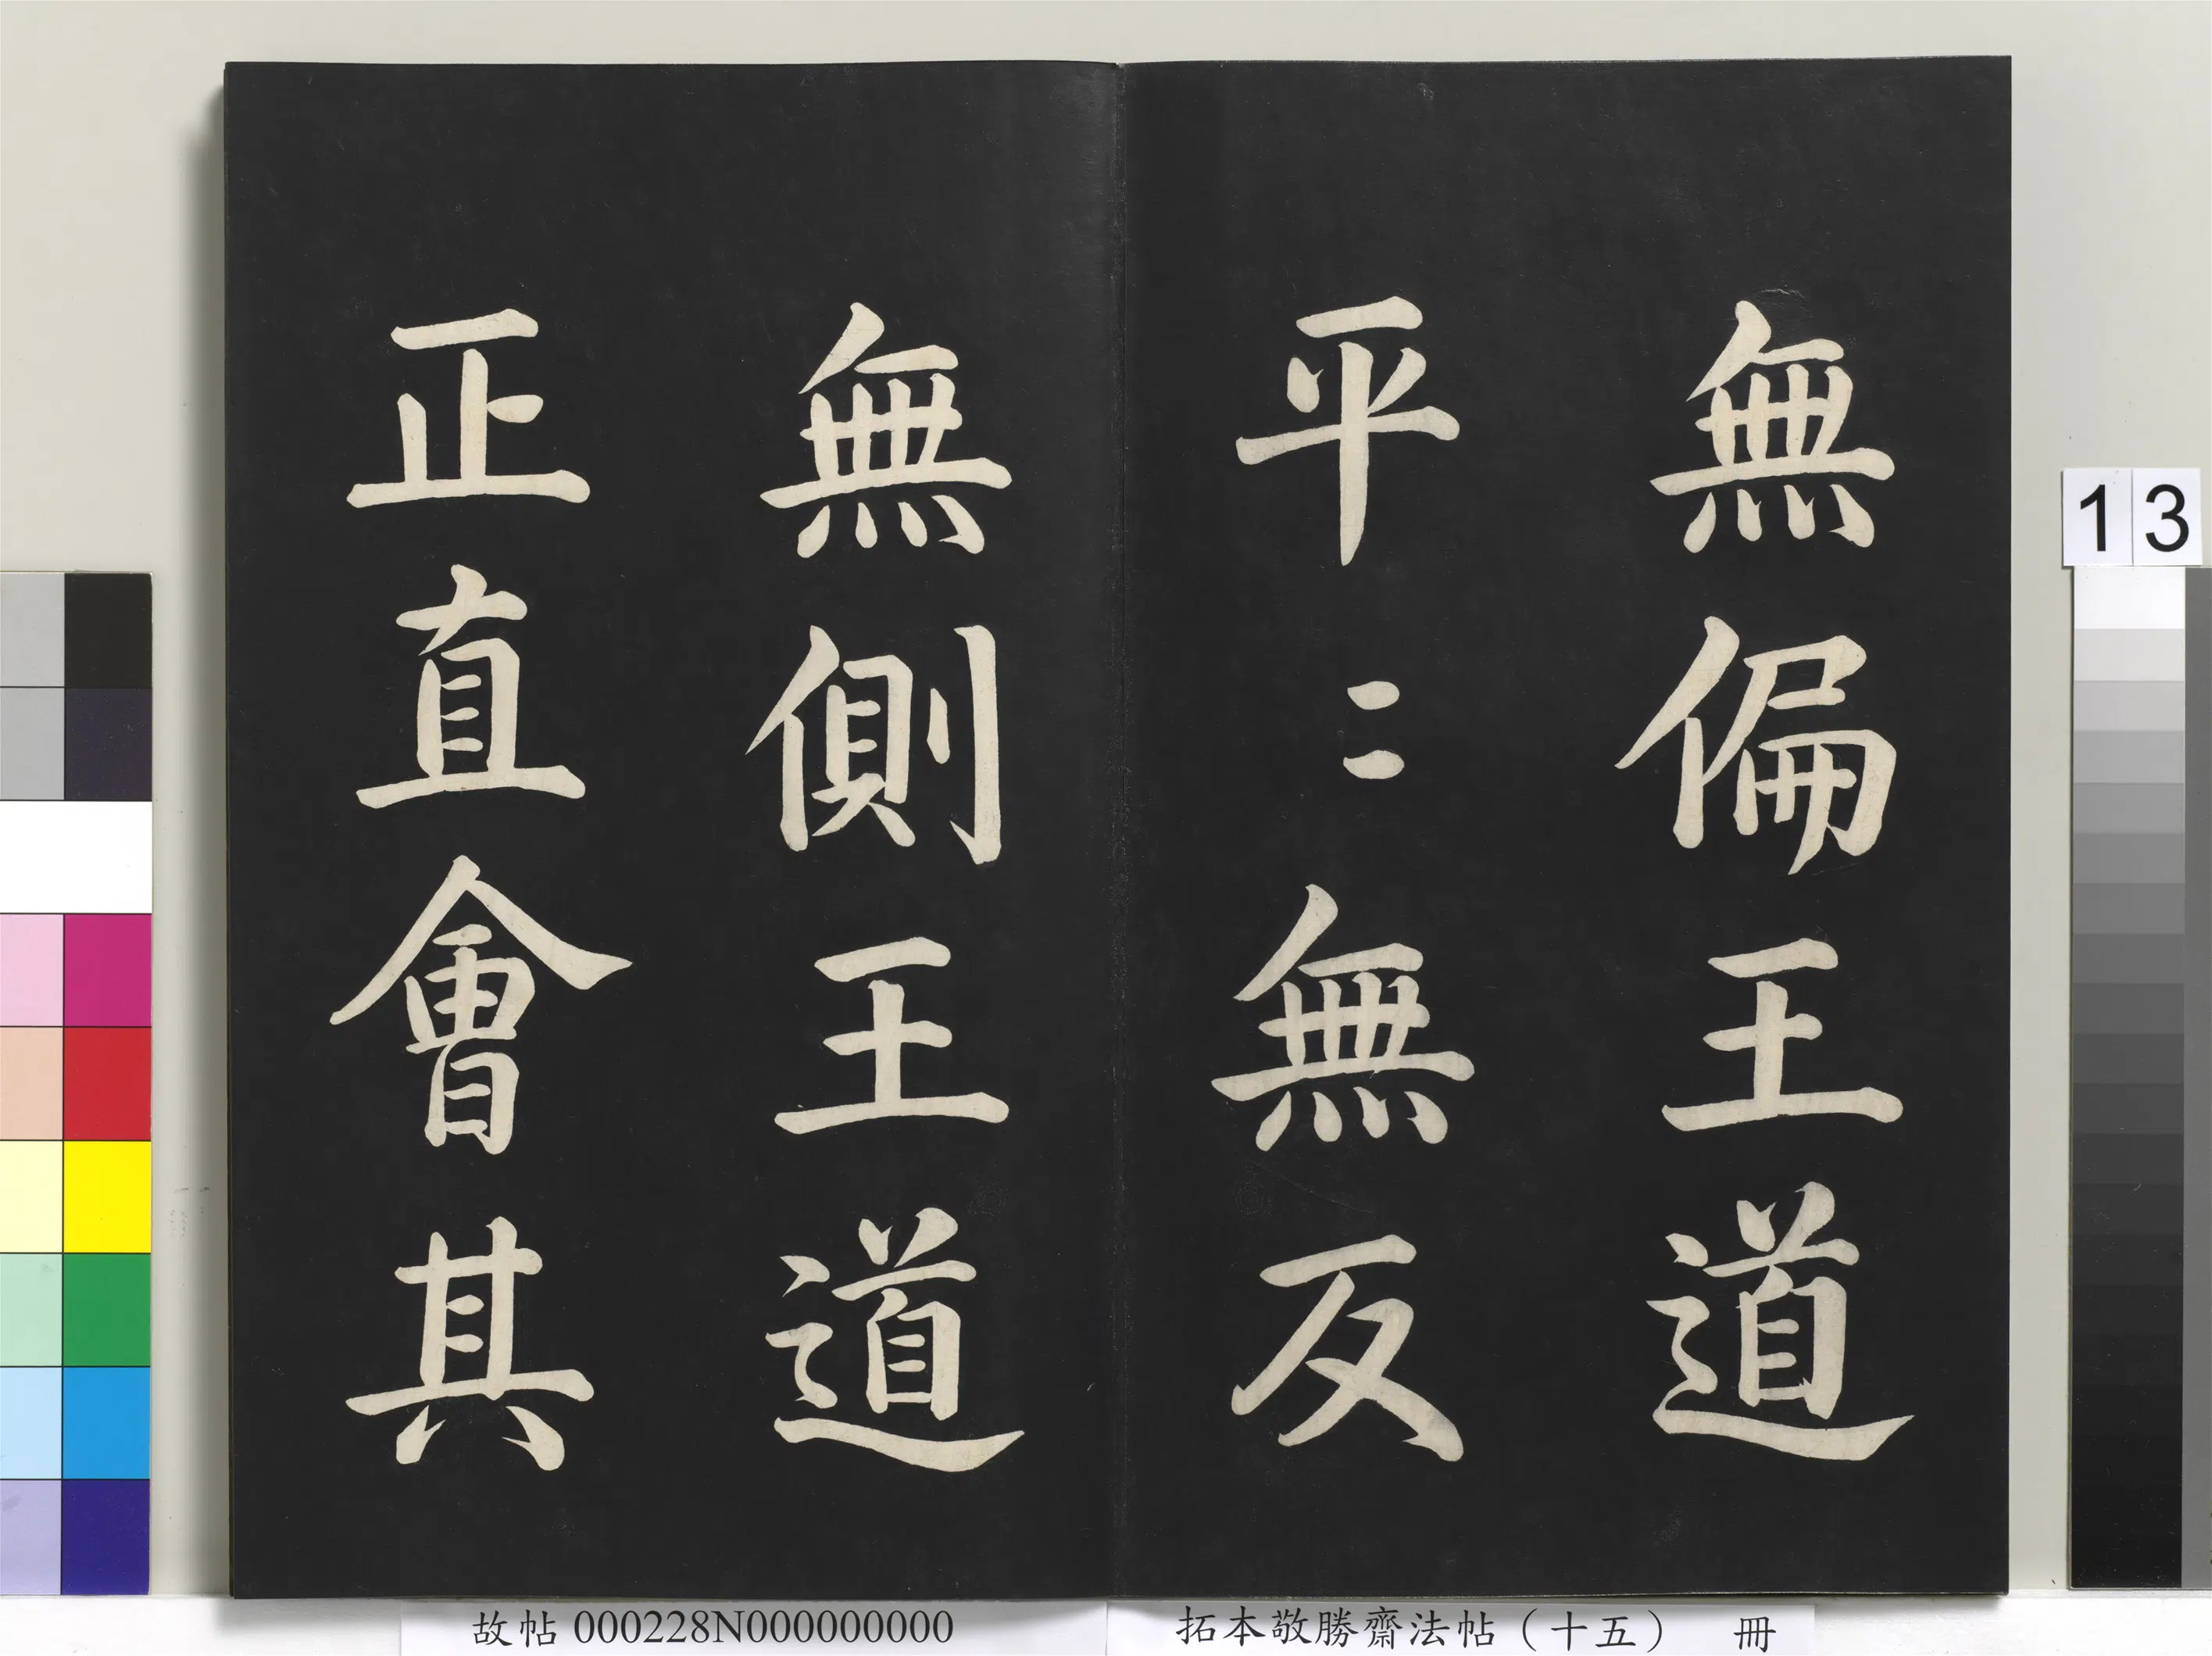 無偏王道
平〻無反
無側王道
正直會其
13
故帖 000228N000000000
拓本敬勝齋法帖（十五） 冊